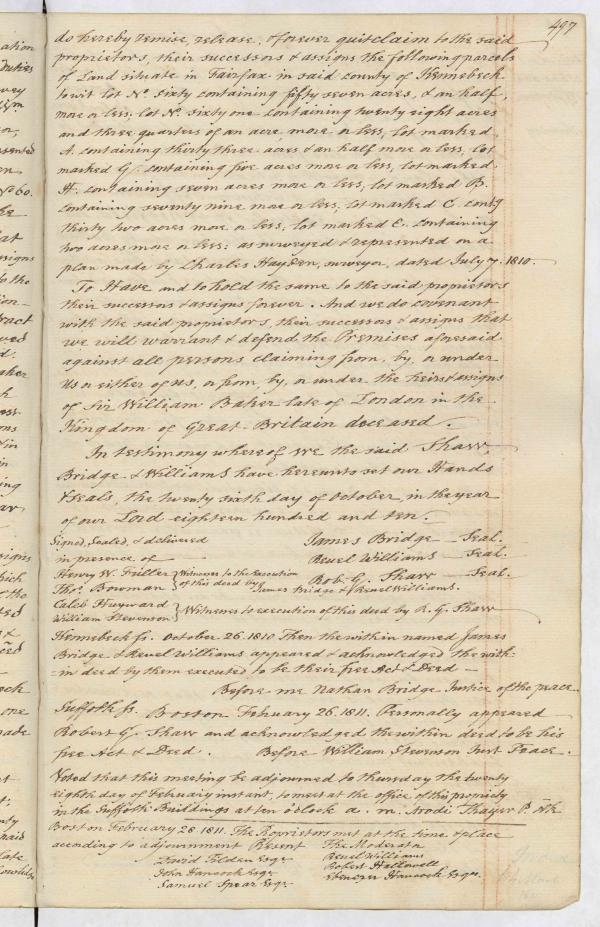 497
do hereby remise, release, & forever quitclaim to the said
proprietors, their successors & assigns the following parcels
of Land situate in Fairfax in said county of Kennebeck
to wit lot No. sixty containing fifty seven acres, & an half,
more or less; lot No. sixty one containing twenty eight acres
and three quarters of an acre more or less, lot marked
A. containing thirty three acres & an half more or less, lot
marked G. containing five acres more or less, lot marked
H. containing seven acres more or less, lot marked B.
containing seventy nine more or less, lot marked C. contg
thirty two acres more or less, lot marked E. containing
two acres more or less: as surveyed & represented on a
plan made by Charles Hayden, surveyor, dated July 7. 1810.
To Have and to hold the same to the said proprietors
their successors & assigns forever. And we do covenant
with the said proprietors, their successors & assigns that
we will warrant & defend the Premises aforesaid
against all persons claiming from, by, or under
us or either of us, or from, by, or under the heirs & assigns
of Sir William Baker late of London in the
Kingdom of Great-Britain deceased.
In testimony whereof we the said Shaw,
Bridge & Williams have hereunto set our Hands
& seals, the twenty sixth day of October, in the year
of our Lord eighteen hundred and ten.
Signed, Sealed, & delivered James Bridge Seal.
in presence of Reuel Williams Seal.
Henry W. Fuller Witnesses to the Execution Rob. G. Shaw Seal.
Thos. Bowman of this deed by James Bridge & Reuel Williams.
Caleb Hayward
William Stevenson Witnesses to execution of this deed by R. G. Shaw
Kennebeck ss. October 26. 1810 Then the within named James
Bridge & Reuel Williams appeared & acknowledged the with-
in deed by them executed to be their free Act & Deed
Before me Nathan Bridge Justice of the peace.
Suffolk ss. Boston February 26. 1811. Personally appeared
Robert G. Shaw and acknowledged the within deed to be his
free Act & Deed. Before William Stevenson Just Peace.
Voted that this meeting be adjourned to thursday the twenty
eighth day of February instant, to meet at the office of this propriety
in the Suffolk Buildings at ten o'clock a. m. Arodi Thayer P. Clk
Boston February 28 1811. The Proprietors met at the time & place
according to adjournment Present The Moderator
David Tilden Esqr Reuel Williams
John Hancock Esqr Robert Hallowell
Samuel Spear Esqr Ebenezer Hancock Esqrs